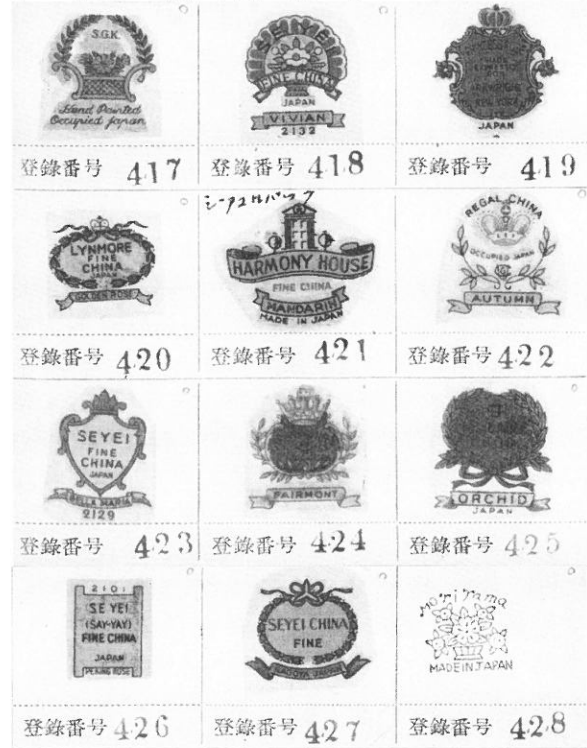 S.G.K.
Hand Painted
Occupied Japan
登錄番号 417
SEYEI
FINE CHINA
JAPAN
VIVIAN
2132
登錄番号 418
JAPAN
登錄番号 419
LYNMORE
FINE
CHINA
JAPAN
GOLDEN ROSE
登錄番号 420
HARMONY HOUSE
FINE CHINA
MANDARIN
MADE IN JAPAN
登錄番号 421
REGAL CHINA
OCCUPIED JAPAN
AUTUMN
登錄番号 422
SEYEI
FINE
CHINA
JAPAN
BELLA MARIA
2129
登錄番号 423
FAIRMONT
登錄番号 424
ORCHID
JAPAN
登錄番号 425
2101
SEYEI
(SAY-YAY)
FINE CHINA
JAPAN
PEKING ROSE
登錄番号 426
SEYEI CHINA
FINE
NAGOYA JAPAN
登錄番号 427
Moriyama
MADE IN JAPAN
登錄番号 428